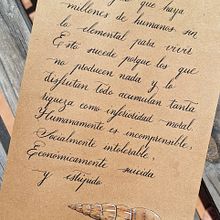 que haya
millones de humanos sin
lo elemental para vivir
Esto sucede porque los que
no producen nada y lo
disfrutan todo acumulan tanta
riqueza como inferioridad moral.
Humanamente es incomprensible.
Socialmente intolerable.
Económicamente suicida
y estúpido